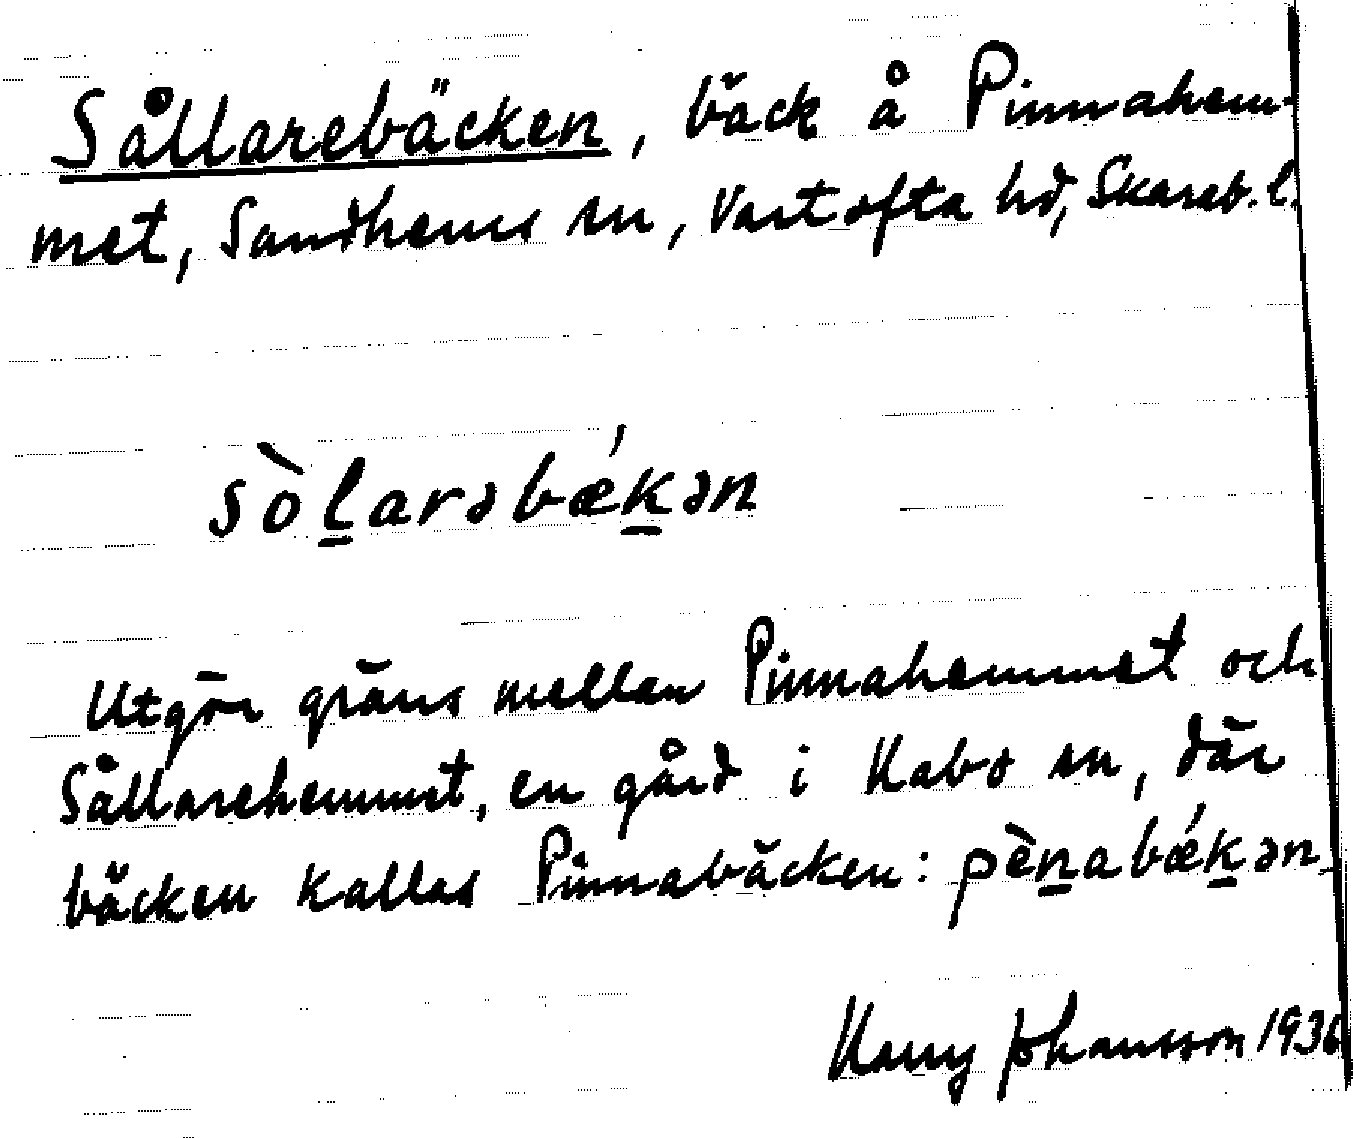 Sållarebäcken, bäck å Pinnahem-
met, Sandhems sn, Vartofta hd, Skarab. l.
sòl̠arəbǽk̠ən
Utgör gräns mellan Pinnahemmet och
Sållarehemmet, en gård i Habo sn, där
bäcken kallas Pinnabäcken: pèn̠abǽk̠ən.
Harry Johansson 1936